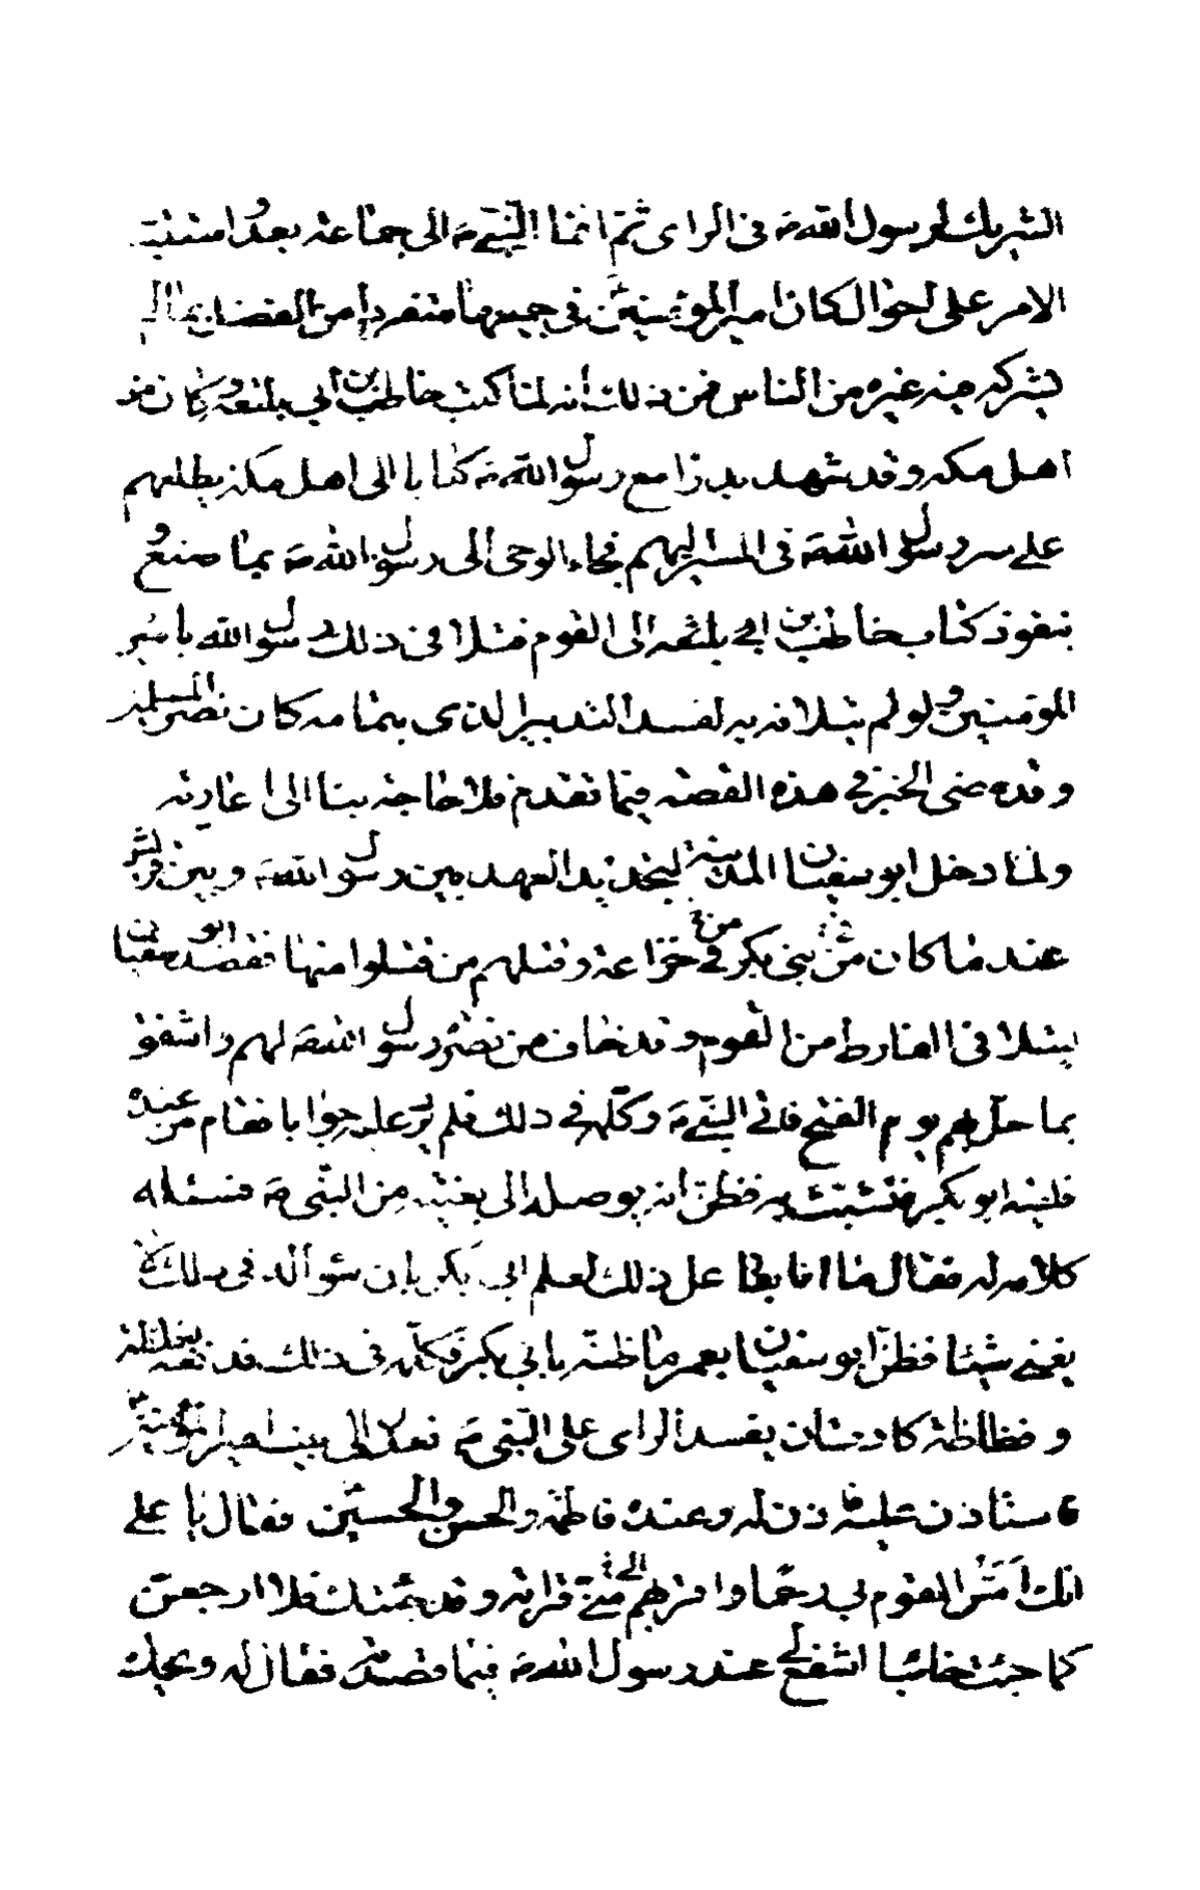 الشريك لرسول الله ص في الراي ثم انما النبي ص الى جماعة بعد استنبة
الامر على احوال كان امير المؤمنين في جميعها منفردا من الفضل بما لم
يشركه فيه غيره من الناس فمن ذلك أنه لما كتب حاطب بن أبي بلتعة وكان من
اهل مكه وقد شهد بدرا مع رسول الله ص كتابا الى اهل مكة يطلعهم
على سر رسول الله ص في المسير اليهم فجاء الوحى الى رسول الله ص بما صنع و
بنفوذ كتاب حاطب بن ابي بلتعه الى القوم فتلافى ذلك رسول الله بامير
المؤمنين ولو لم يتلافه به لفسد التدبير الذى بتمامه كان نصر المسلمين
وقد مضى الخبر في هذه القصه فيما تقدم فلا حاجة بنا الى اعادته
ولما دخل ابو سفيان المدينة لتجديد العهد بين رسول الله ص وبين قريش
عند ما كان من بني بكر في خزاعة وقتلهم من قتلوا منها فقصد ابو سفيان
ليتلافى الفارط من القوم وقد خاف من نصرة رسول الله ص لهم واشفق
بما حل بهم يوم الفتح فاتى النبي ص وكلمه في ذلك فلم يرد عليه جوابا فقام من عنده
فلقيه ابو بكر فتشبث به فظن انه يوصله الى بغيته من النبي ص فسئله
كلامه له فقال ما انا بفاعل ذلك لعلم ابي بكر بان سؤاله في ذلك لا
يغني شيئا فظن ابو سفيان بعمر ما ظنه بابي بكر فكلمه في ذلك فدفعه بغلظة
وفظاظة كادت ان يفسد الراى على النبي ص فعدل الى بيت امير المؤمنين
ع فاستاذن عليه فاذن له وعنده فاطمة والحسن والحسين فقال يا على
انك امس القوم لي رحما واقربهم الى مني قرابة وقد جئتك فلا ارجعن
كما جئت خائبا اشفع لي عند رسول الله ص فيما قصدته فقال له ويحك